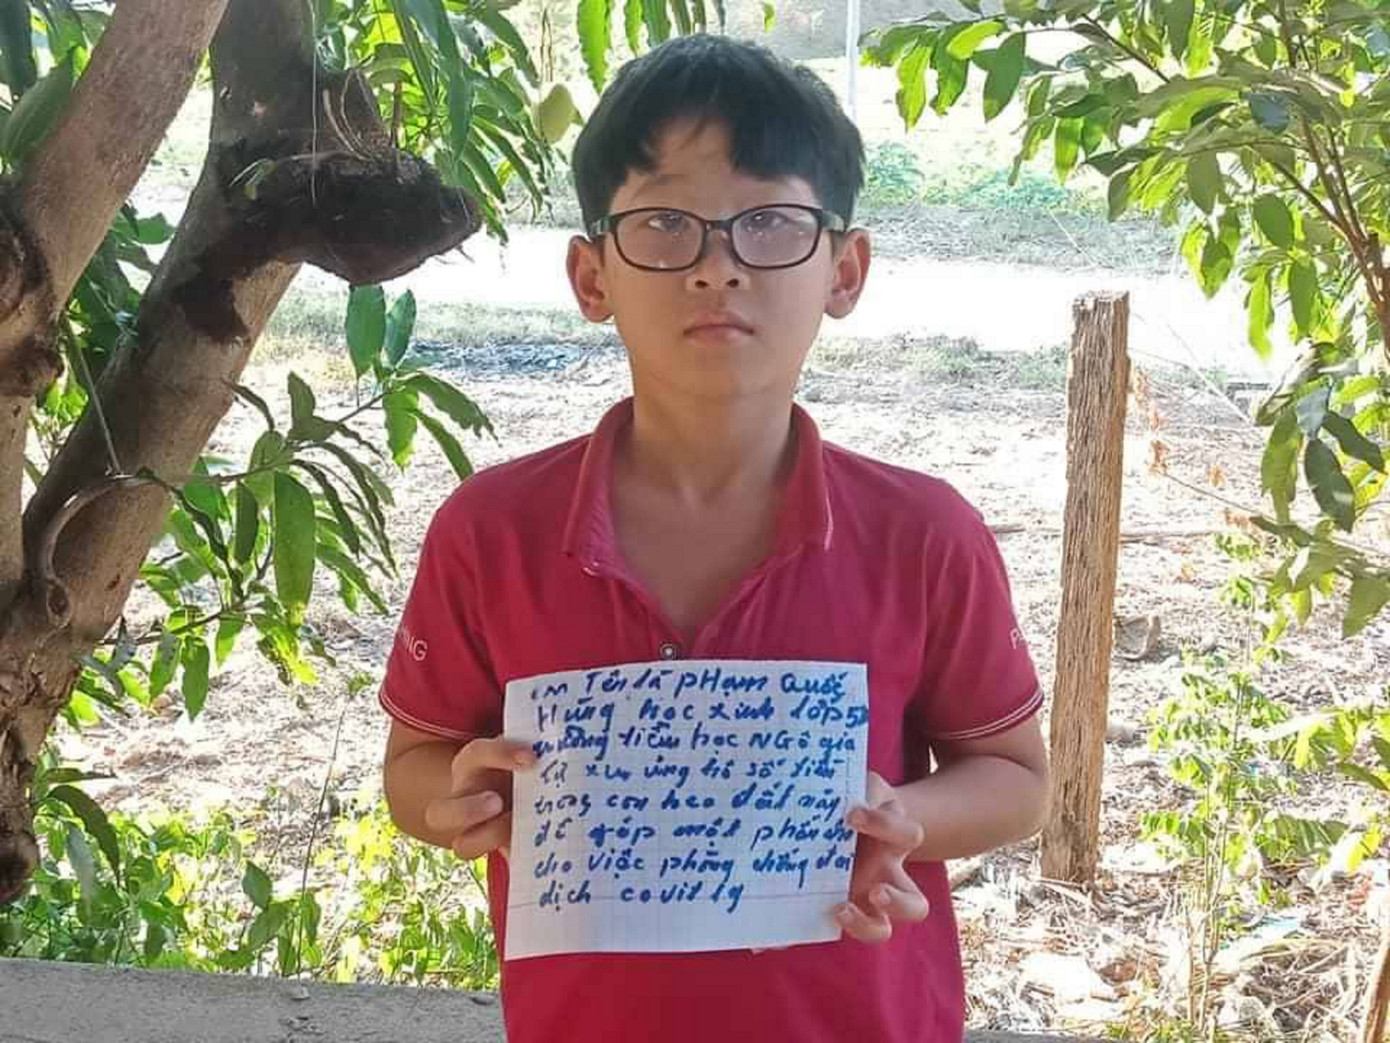 em Tên là pHạm Quốc
Hưng học xinh lớp 5B
trường tiểu học NGô gia
tự xin ủng hộ số tiền
trong con heo đất này
để góp một phần cho
cho việc phòng chống đại
dịch covit 19